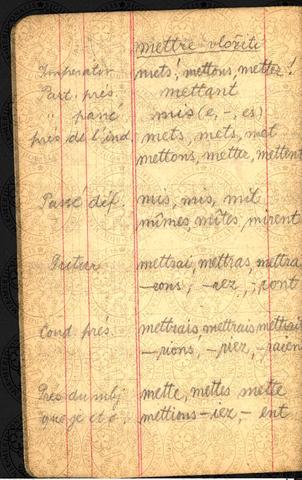 mettre vložiti
Imperatif mets! mettons, mettez!
Part. prés. mettant
" passé mis (e, -, es)
prés de l'ind. mets, mets, met
mettons, mettez, mettent
Passé déf. mis, mis, mit
mîmes, mîtes, mirent
Futur mettrai, mettras, mettra
-rons, -rez, -ront
Cond prés. mettrais, mettrais, mettrait
-rions, -riez, -raient
Prés du subj mette, mettes, mette
que je et c. mettions -iez, - ent